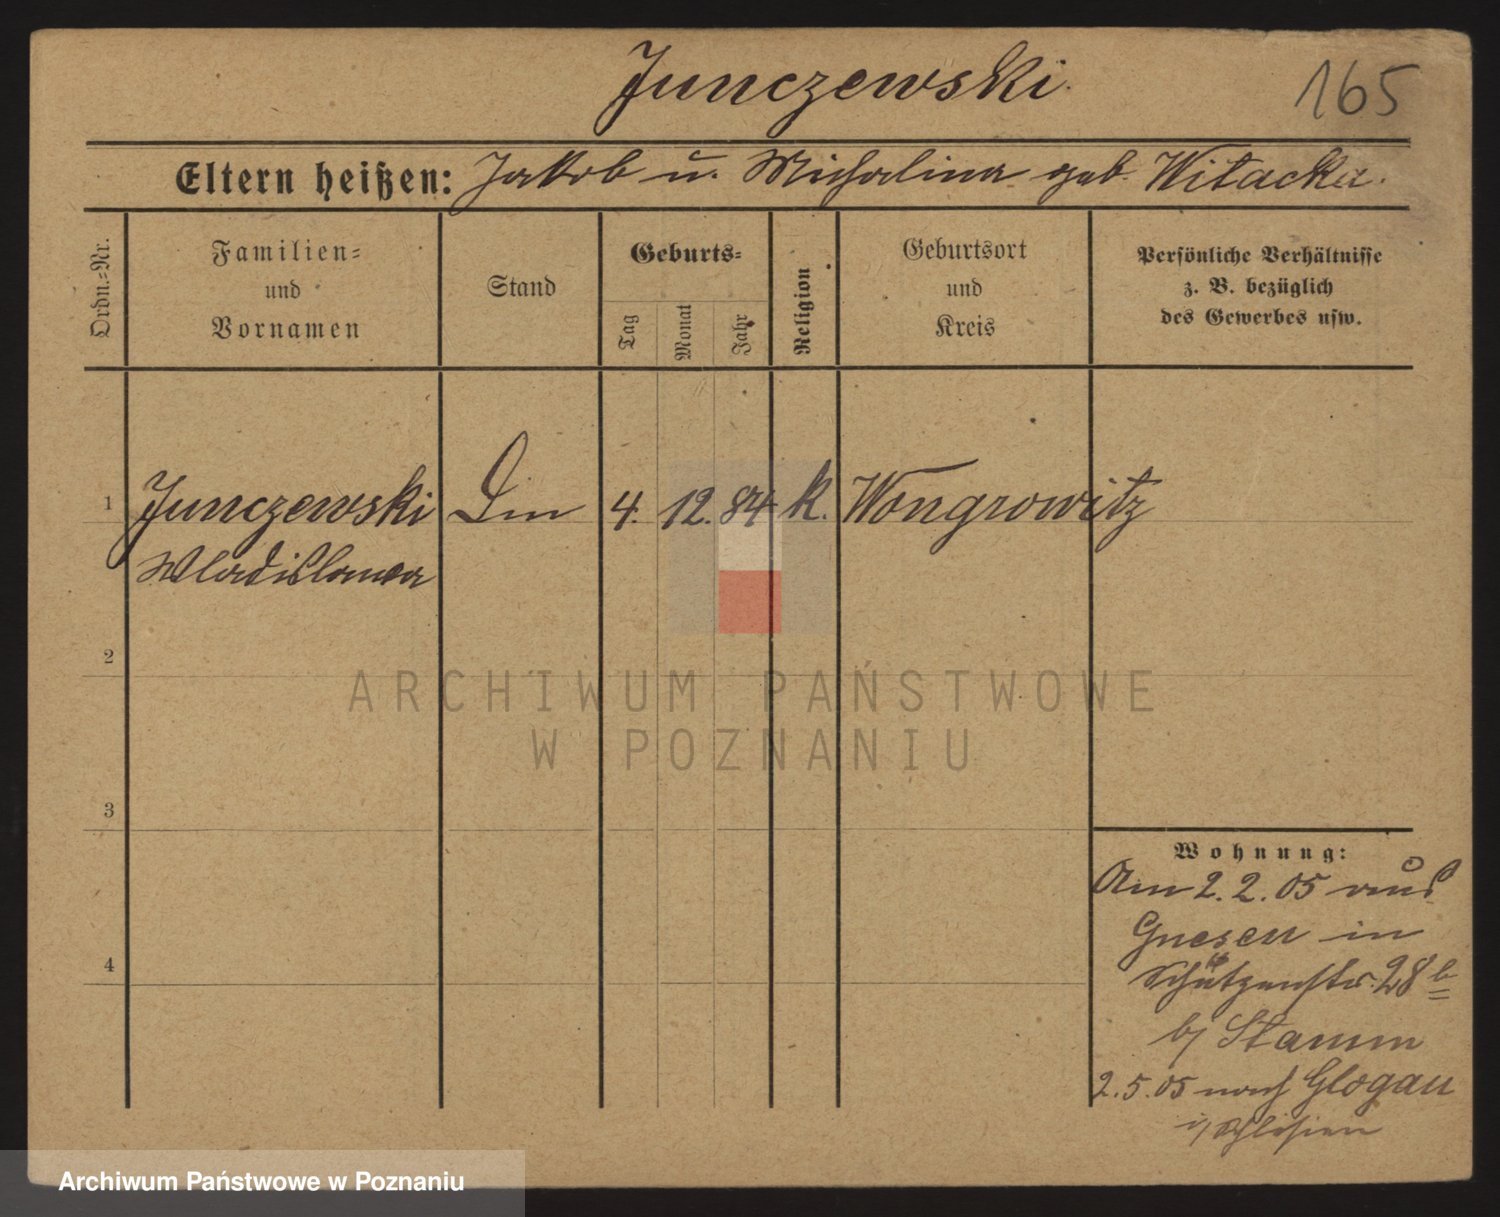 Junczewski.
165
Eltern heißen: Jakob u. Michalina geb. Witacka.
Ordn.-Nr.
Familien-
und
Vornamen
Stand
Geburts-
Tag
Monat
Jahr
Religion
Geburtsort
und
Kreis
Persönliche Verhältnisse
z. B. bezüglich
des Gewerbes usw.
1 Junczewski 4. 12. 84 k. Wongrowitz
Wladislawa
2
ARCHIWUM PAŃSTWOWE
W POZNANIU
3
4
Wohnung:
Am 2.2.05 aus
Gnesen in
Schützenstr. 28 b
b/ Stamm
2.5.05 nach Glogau
i/ Schlesien
Archiwum Państwowe w Poznaniu